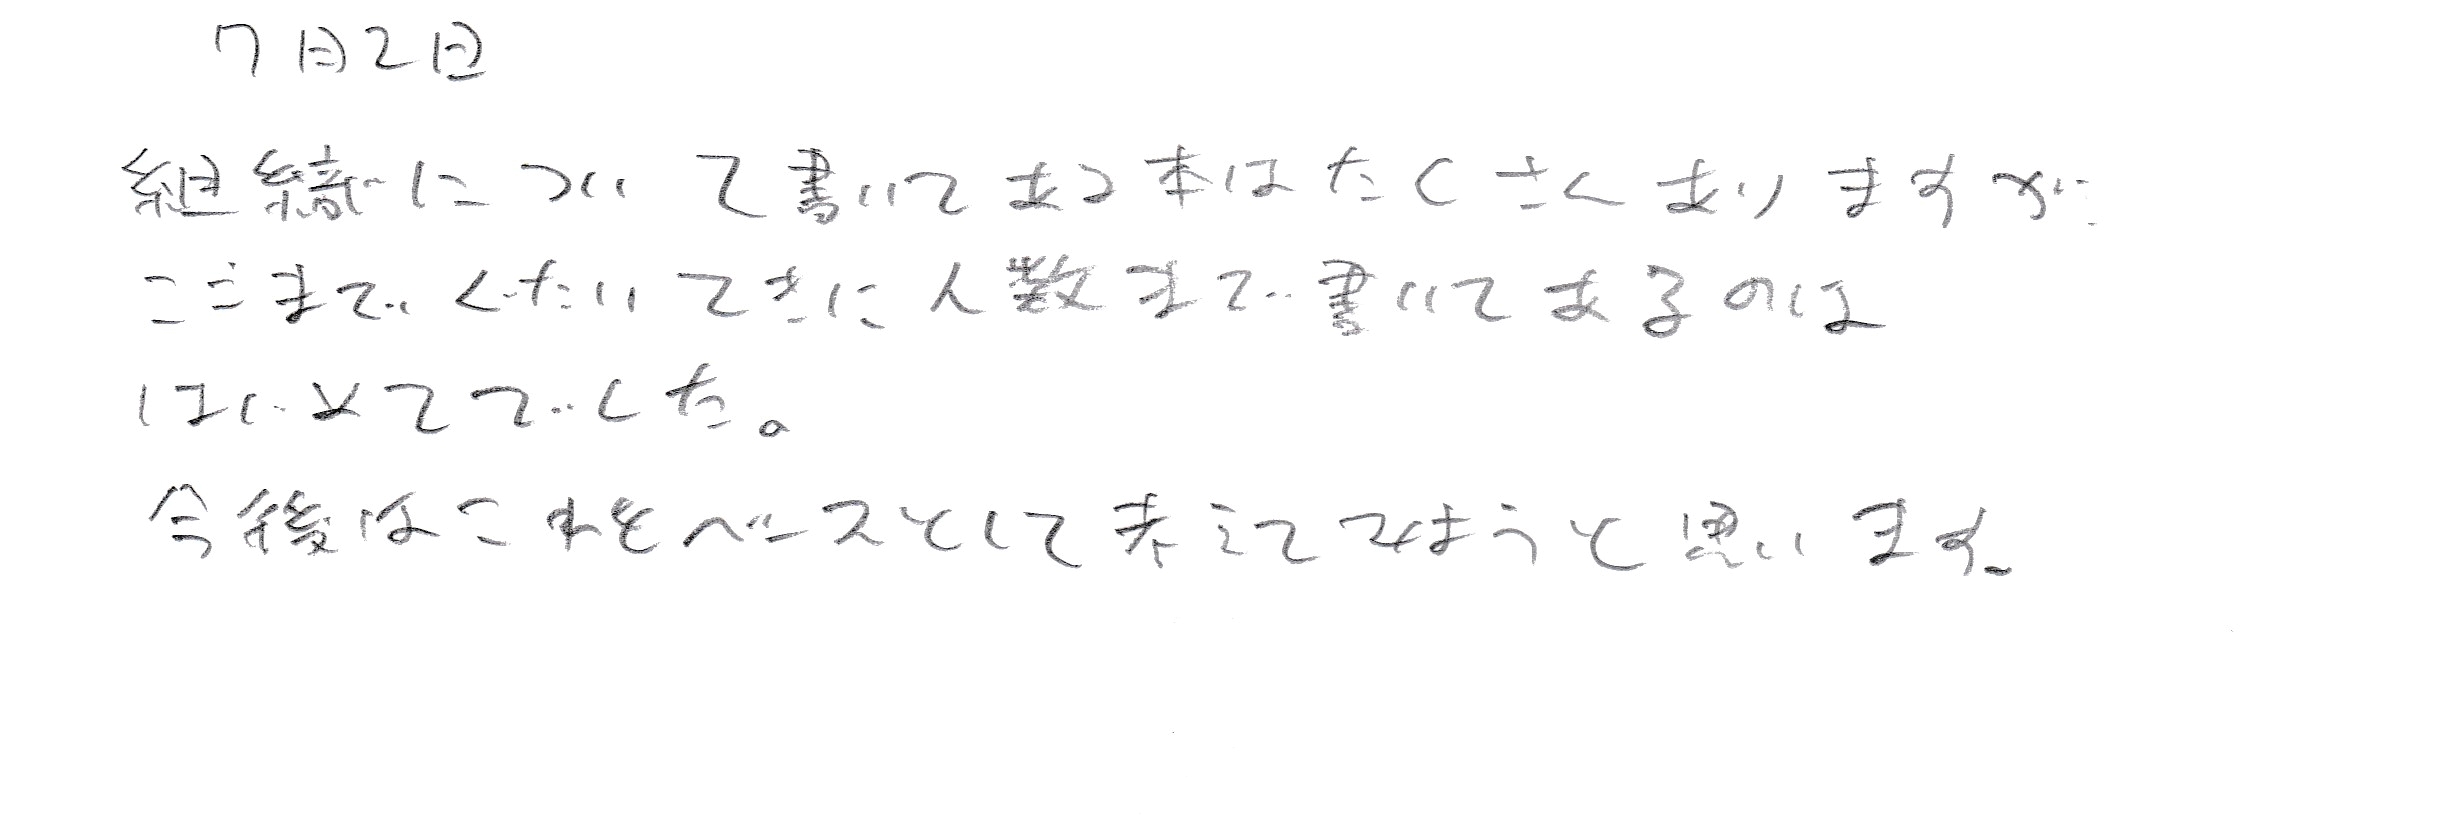 7月2日
組織について書いてある本はたくさくありますが
ここまでぐたいてきに人数まで書いてあるのは
はじめてでした。
今後はこれをベースとして考えてみようと思います。